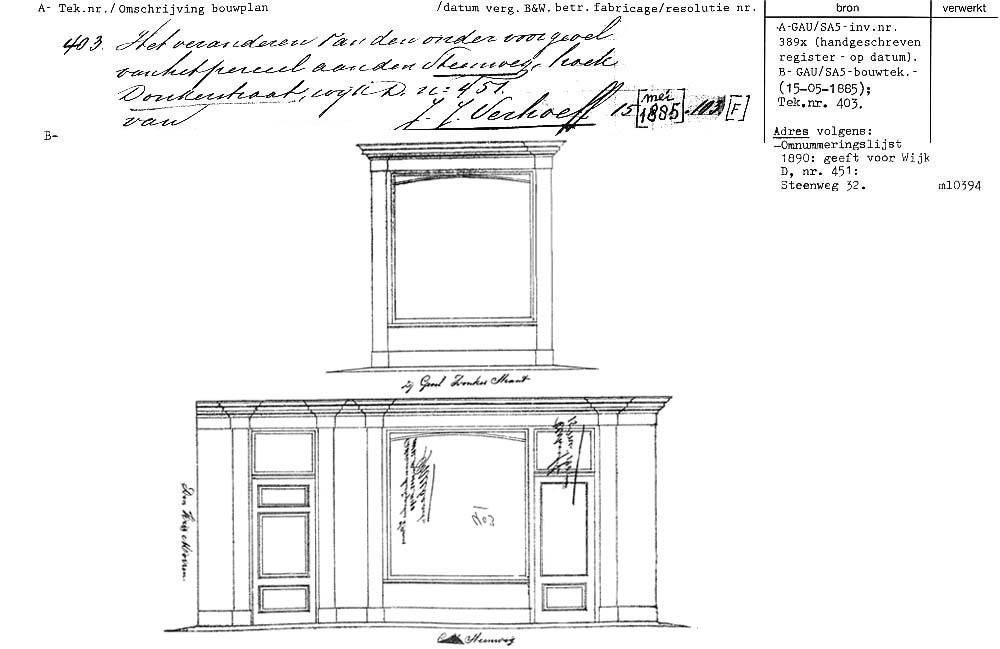 A- Tek.nr./Omschrijving bouwplan /datum verg. B&W. betr. fabricage/resolutie nr. bron verwerkt
403. Het veranderen van den onder voorgevel
van het perceel aan den Steenweg, hoek
Donkerstraat, wijk D. no: 451.
van J. J. Verhoeff 15 [mei 1885] 103 [F]
A-GAU/SA5-inv.nr.
389x (handgeschreven
register - op datum).
B- GAU/SA5-bouwtek.-
(15-05-1885);
Tek.nr. 403.
Adres volgens:
-Omnummeringslijst
1890: geeft voor Wijk
D, nr. 451:
Steenweg 32.
m10394
B-
Gevel Donker Straat
Steenweg